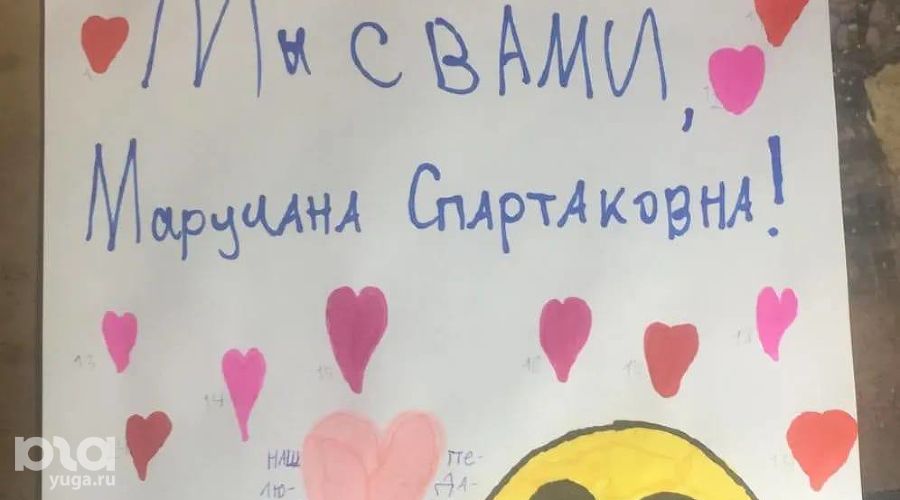 Мы С ВАМИ,
Маруиана Спартаковна!
13
14
15
16
НАШ
ПЕ-
ЛЮ-
ДА-
юга
yuga.ru